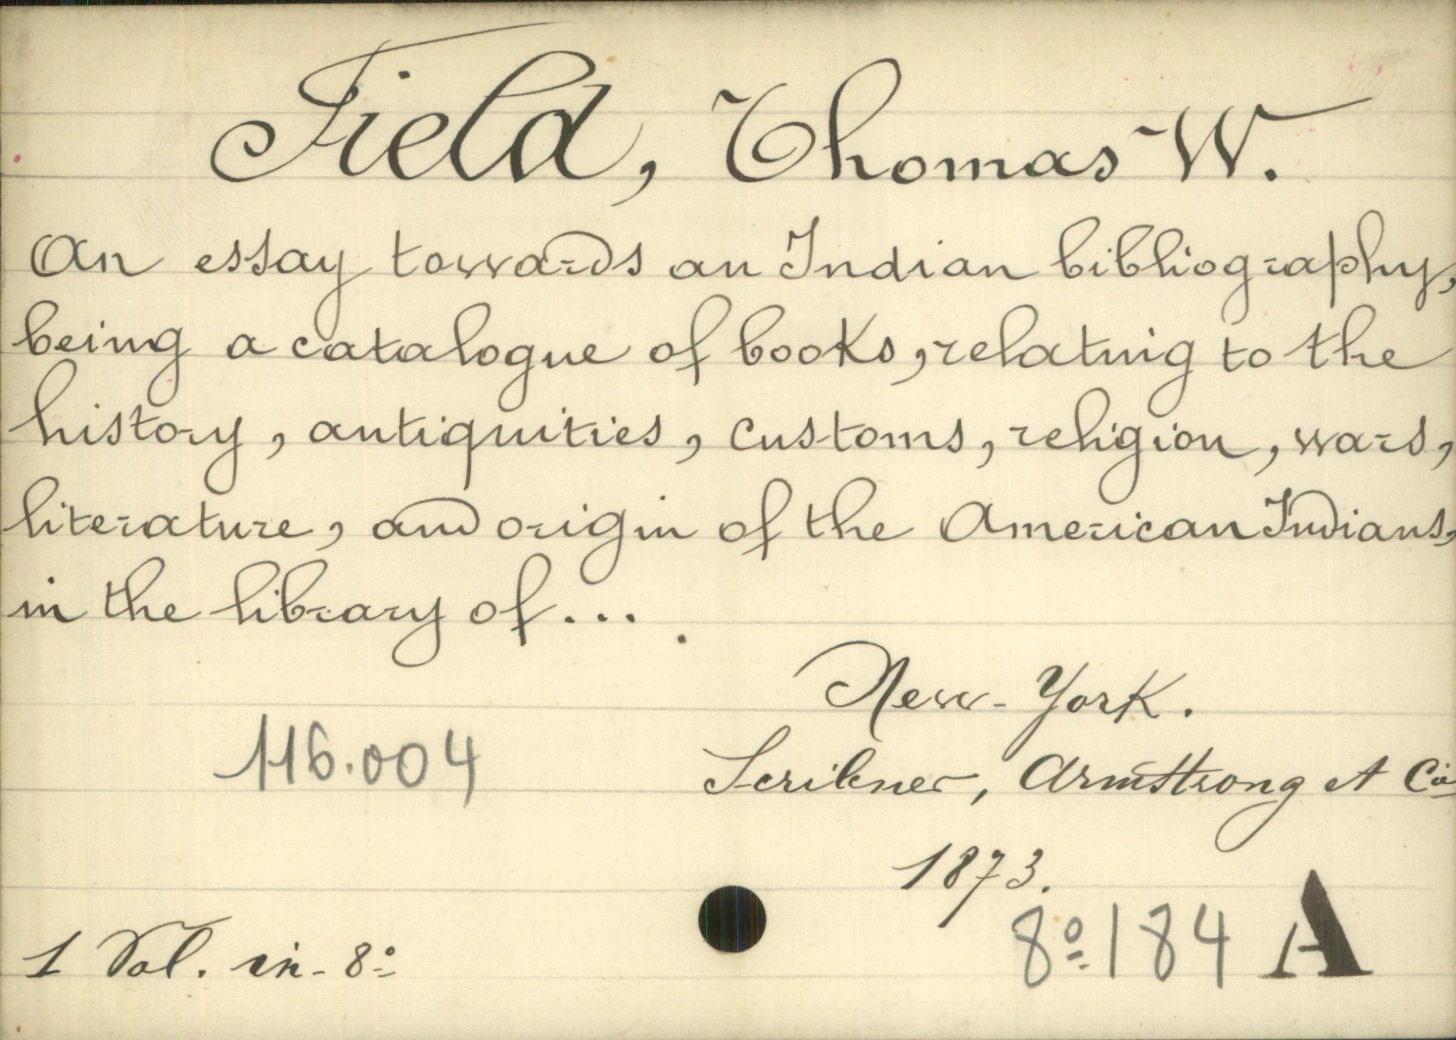 Field, Thomas W.
An essay towards an Indian bibliography,
being a catalogue of books, relating to the
history, antiquities, customs, religion, wars,
literature, and origin of the American Indians,
in the library of... .
New-York.
116.004
Scribner, Armstrong et Cie
1873.
8º 184 A
1 Vol. in-8º